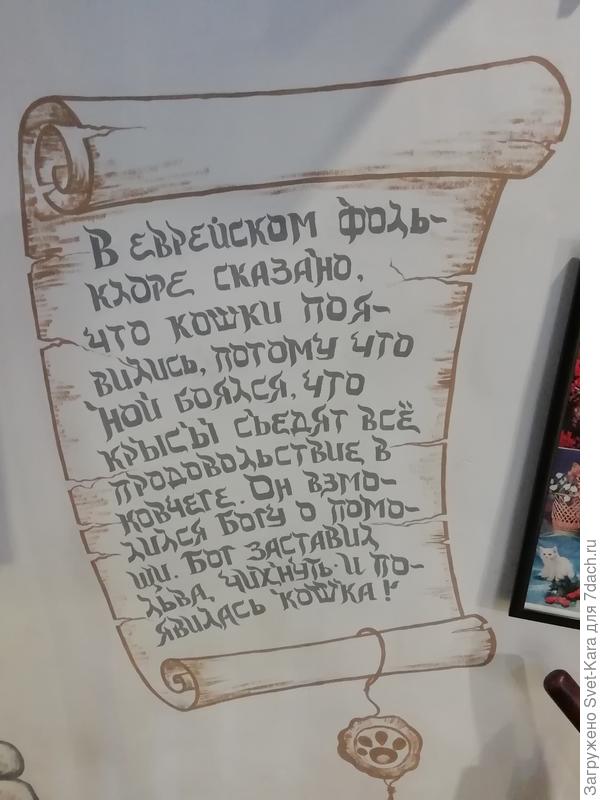 В ЕВРЕЙСКОМ ФОЛЬ-
КЛОРЕ СКАЗАНО,
ЧТО КОШКИ ПОЯ-
ВИЛИСЬ, ПОТОМУ ЧТО
НОЙ БОЯЛСЯ, ЧТО
КРЫСЫ СЪЕДЯТ ВСЁ
ПРОДОВОЛЬСТВИЕ В
КОВЧЕГЕ. ОН ВЗМО-
ЛИЛСЯ БОГУ О ПОМО-
ЩИ. БОГ ЗАСТАВИЛ
ЛЬВА, ЧИХНУТЬ И ПО-
ЯВИЛАСЬ КОШКА!
Загружено Svet-Kara для 7dach.ru